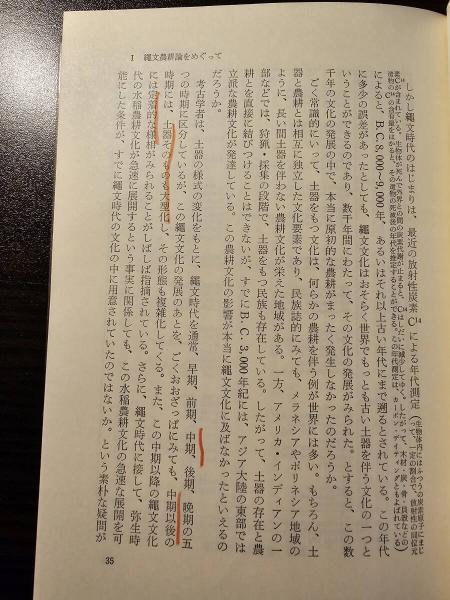 I　縄文農耕論をめぐって
しかし縄文時代のはじまりは、最近の放射性炭素C¹⁴による年代測定
によると、B.C.8,000~9,000年、あるいはそれ以上古い年代にまで遡るとされている。この年代
に多少の誤差があったとしても、縄文文化はおそらく世界でもっとも古い土器を伴う文化の一つと
いうことができるのであり、数千年間にわたって、その文化の発展がみられた。とすると、この数
千年の文化の発展の中で、本当に原初的な農耕がまったく発生しなかったのだろうか。
ごく常識的にいって、土器をもつ文化は、何らかの農耕を伴う例が世界には多い。もちろん、土
器と農耕とは相互に独立した文化要素であり、民族誌的にみても、メラネシアやポリネシア地域の
ように、長い間土器を伴わない農耕文化が栄えた地域がある。一方、アメリカ・インディアンの一
部などでは、狩猟・採集の段階で、土器をもつ民族も存在している。したがって、土器の存在と農
耕とを直接に結びつけることはできないが、すでにB.C.3,000年紀には、アジア大陸の東部では
立派な農耕文化が発達している。この農耕文化の影響が本当に縄文文化に及ばなかったといえるの
だろうか。
考古学者は、土器の様式の変化をもとに、縄文時代を通常、早期、前期、中期、後期、晩期の五
つの時期に区分しているが、この縄文文化の発展のあとを、ごくおおざっぱにみても、中期以後の
時期には、土器そのものも大型化し、その形態も複雑化してくる。また、この中期以降の縄文文化
には定着的な様相がみられることがしばしば指摘されている。さらに、縄文時代に接して、弥生時
代の水稲農耕文化が急速に展開するという事実に関係しても、この水稲農耕文化の急速な展開を可
能にした条件が、すでに縄文時代の文化の中に用意されていたのではないか。という素朴な疑問が
35